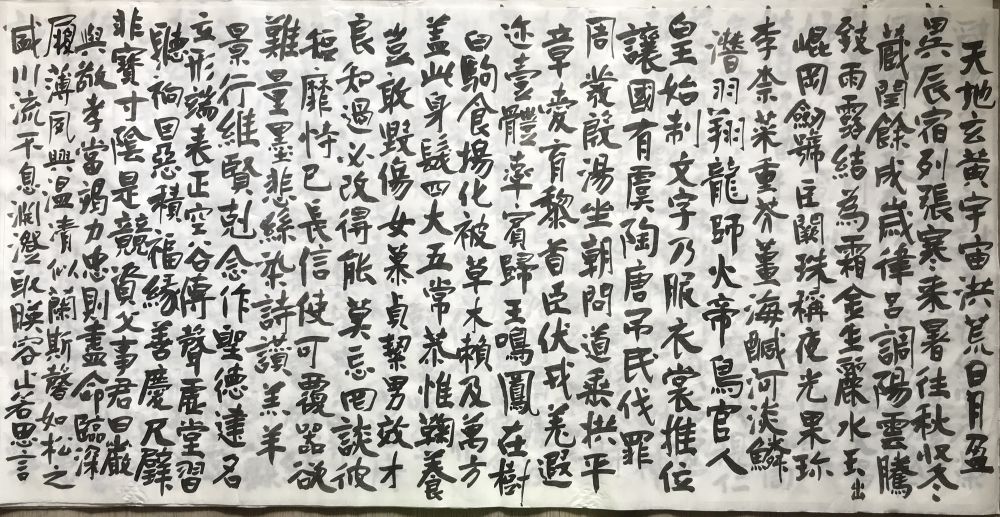 天地玄黃宇宙洪荒日月盈
昃辰宿列張寒来暑往秋收冬
藏閏餘成歲律呂調陽雲騰
致雨露結為霜金生麗水玉出
崐岡劍號巨闕珠稱夜光果珎
李柰菜重芥薑海鹹河淡鱗
潛羽翔龍師火帝鳥官人
皇始制文字乃服衣裳推位
讓國有虞陶唐吊民伐罪
周發殷湯坐朝問道垂拱平
章愛育黎首臣伏戎羌遐
迩壹體率賓歸王鳴鳳在樹
白駒食場化被草木賴及萬方
蓋此身髮四大五常恭惟鞠養
豈敢毀傷女慕貞絜男效才
良知過必改得能莫忘罔談彼
短靡恃己長信使可覆器欲
難量墨悲絲染詩讚羔羊
景行維賢剋念作聖德建名
立形端表正空谷傳聲虛堂習
聽禍因惡積福緣善慶尺璧
非寶寸陰是競資父事君曰嚴
與敬孝當竭力忠則盡命臨深
履薄夙興溫清似蘭斯馨如松之
盛川流不息淵澄取暎容止若思言